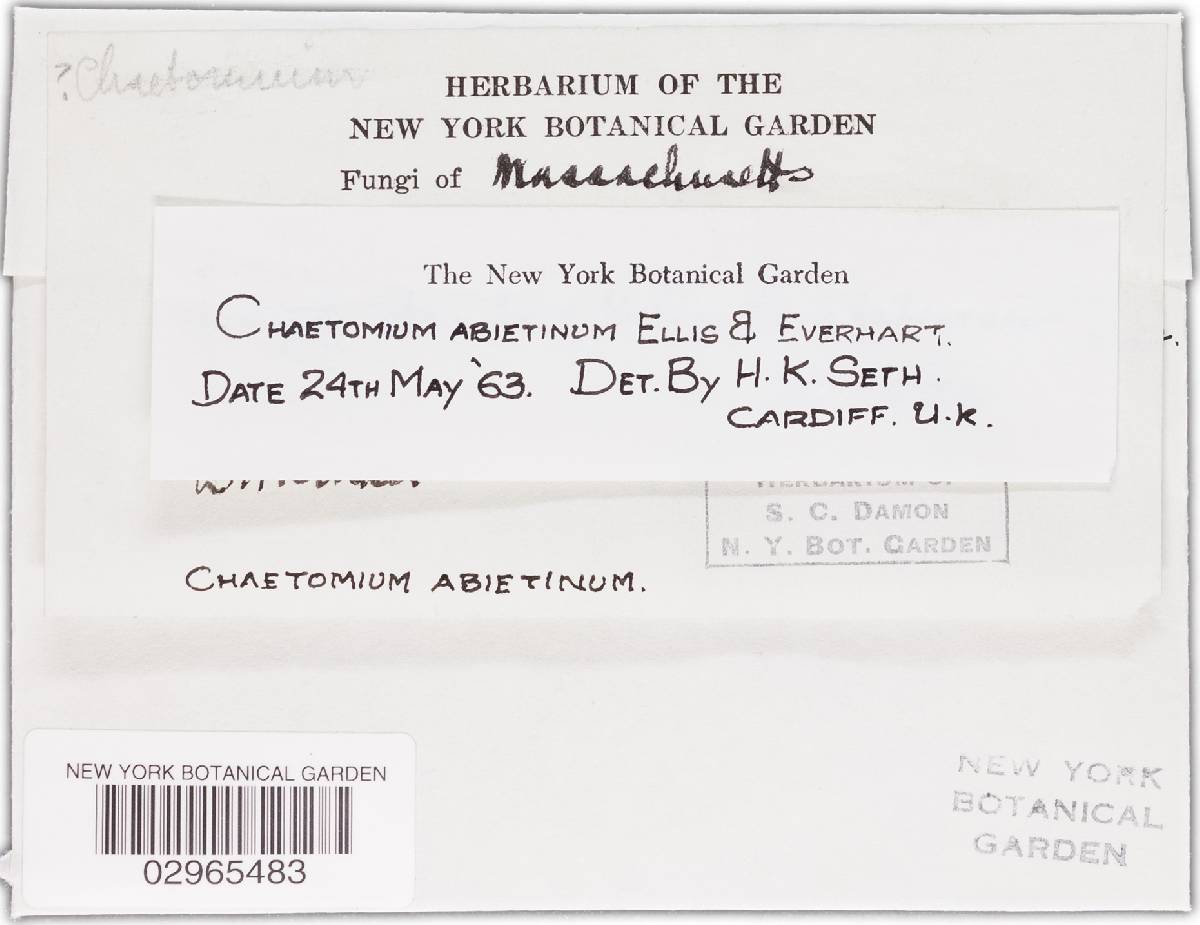 ?Chaetomium
HERBARIUM OF THE
NEW YORK BOTANICAL GARDEN
Fungi of Massachusetts
The New York Botanical Garden
CHAETOMIUM ABIETINUM ELLIS & EVERHART.
DATE 24TH MAY '63. DET. BY H. K. SETH.
CARDIFF. U.K.
HERBARIUM OF
S. C. DAMON
N. Y. BOT. GARDEN
CHAETOMIUM ABIETINUM.
NEW YORK BOTANICAL GARDEN
02965483
NEW YORK
BOTANICAL
GARDEN